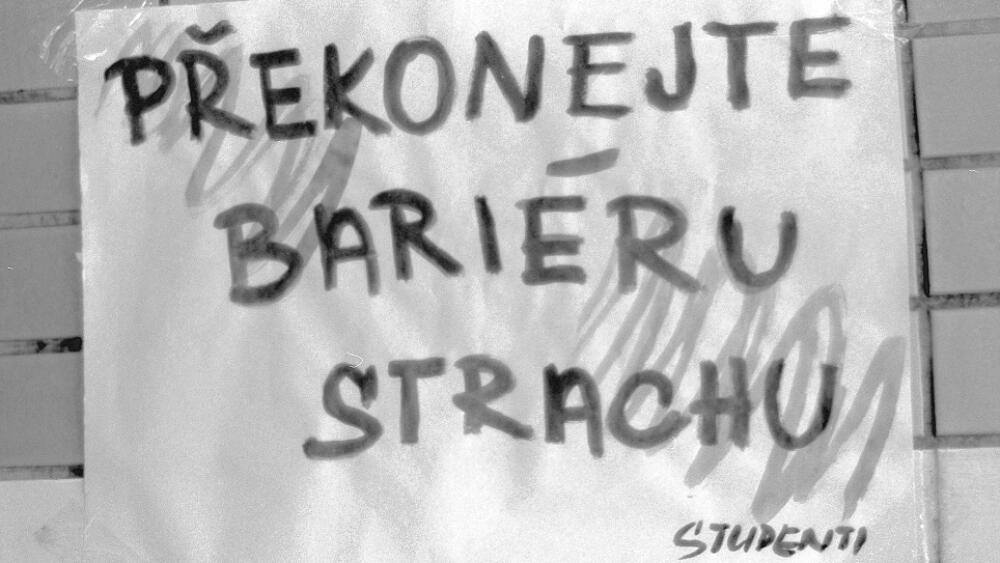 PŘEKONEJTE
BARIÉRU
STRACHU
STUDENTI